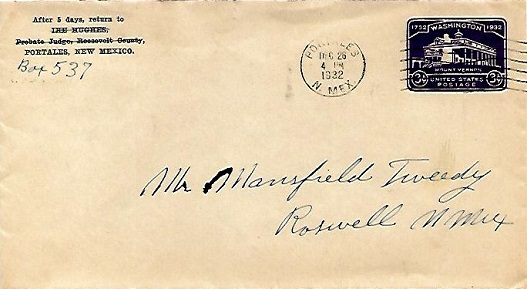 After 5 days, return to
IRE HUGHES,
Probate Judge, Roosevelt County,
PORTALES, NEW MEXICO.
Box 537
PORTALES
DEC 26
4 PM
1932
N. MEX.
1732 WASHINGTON 1932
MOUNT VERNON
3¢ UNITED STATES 3¢
POSTAGE
Mr Mansfield Tweedy
Roswell N Mex